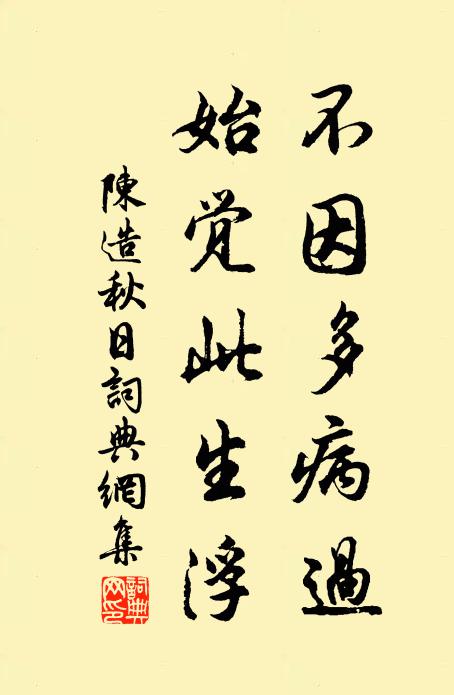 不因多病過
始觉此生浮
陳造秋日詞典網集
詞典网印